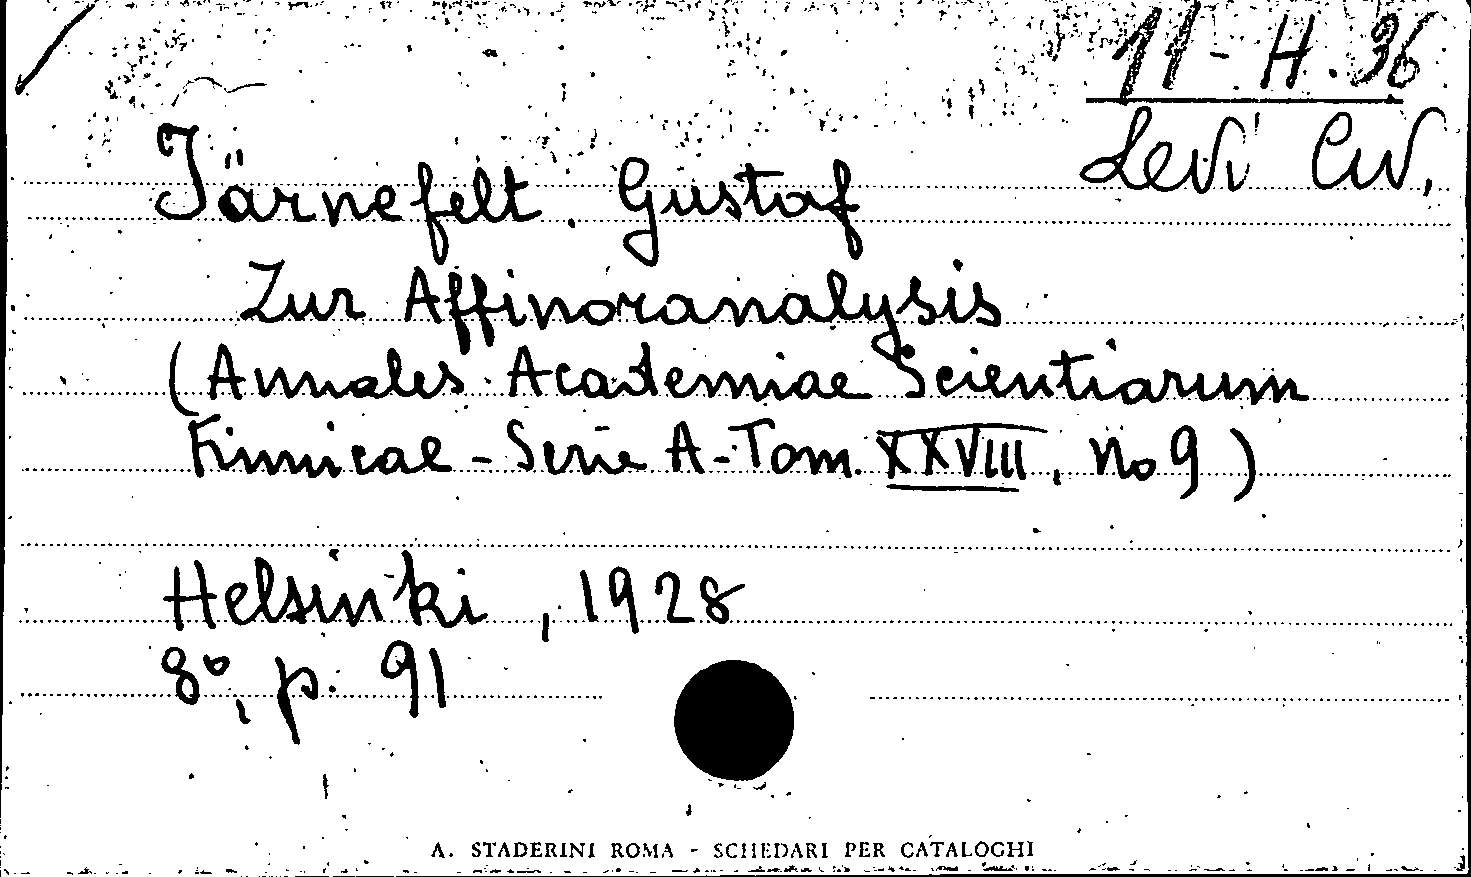 11-H.36
Levi Civ.
Järnefelt. Gustaf
Zur Affinoranalysis
(Annales Academiae Scientiarum
Fennicae - Serie A - Tom. XXVIII, no 9)
Helsinki, 1928
8°, p. 91
A. STADERINI ROMA - SCHEDARI PER CATALOGHI